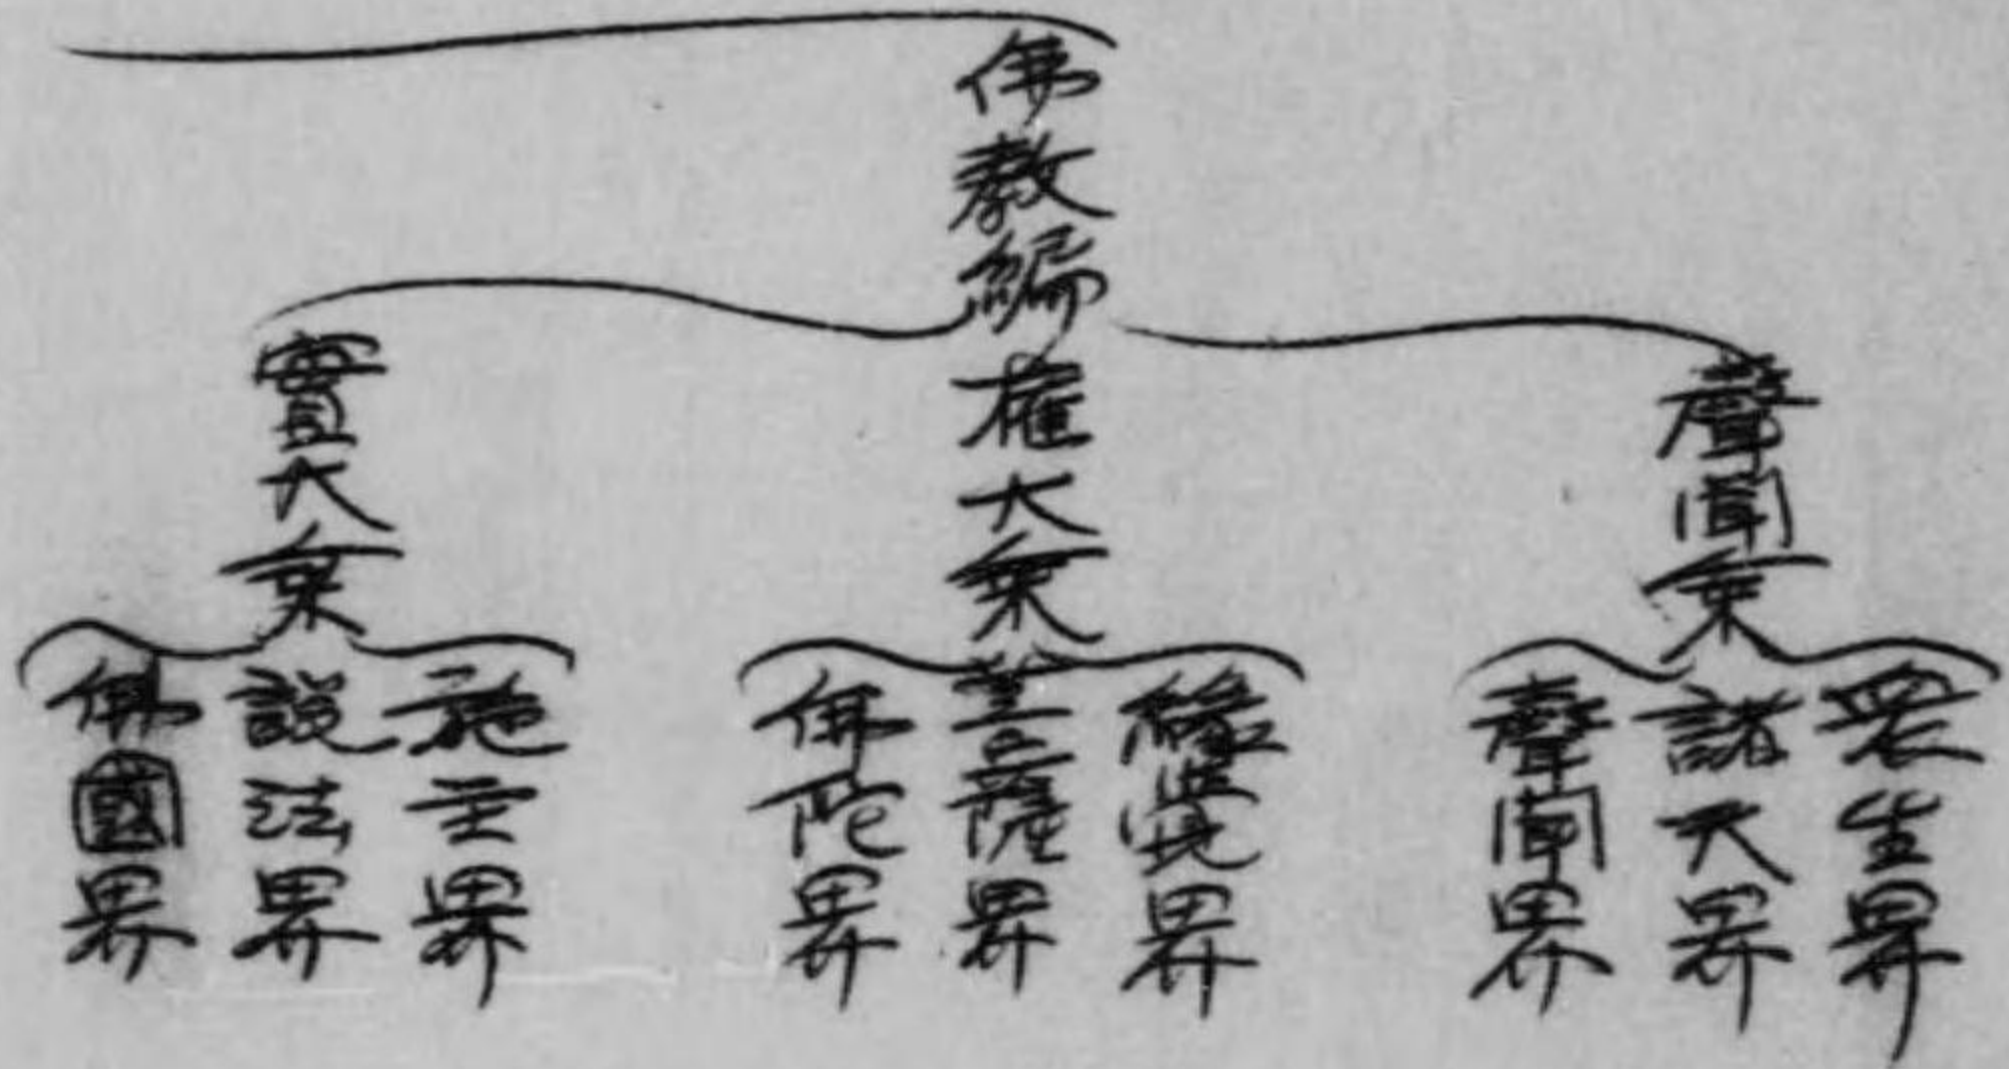 佛教編
聲聞乘
眾生界
諸天界
聲聞界
權大乘
緣覺界
菩薩界
佛陀界
實大乘
施主界
說法界
佛國界